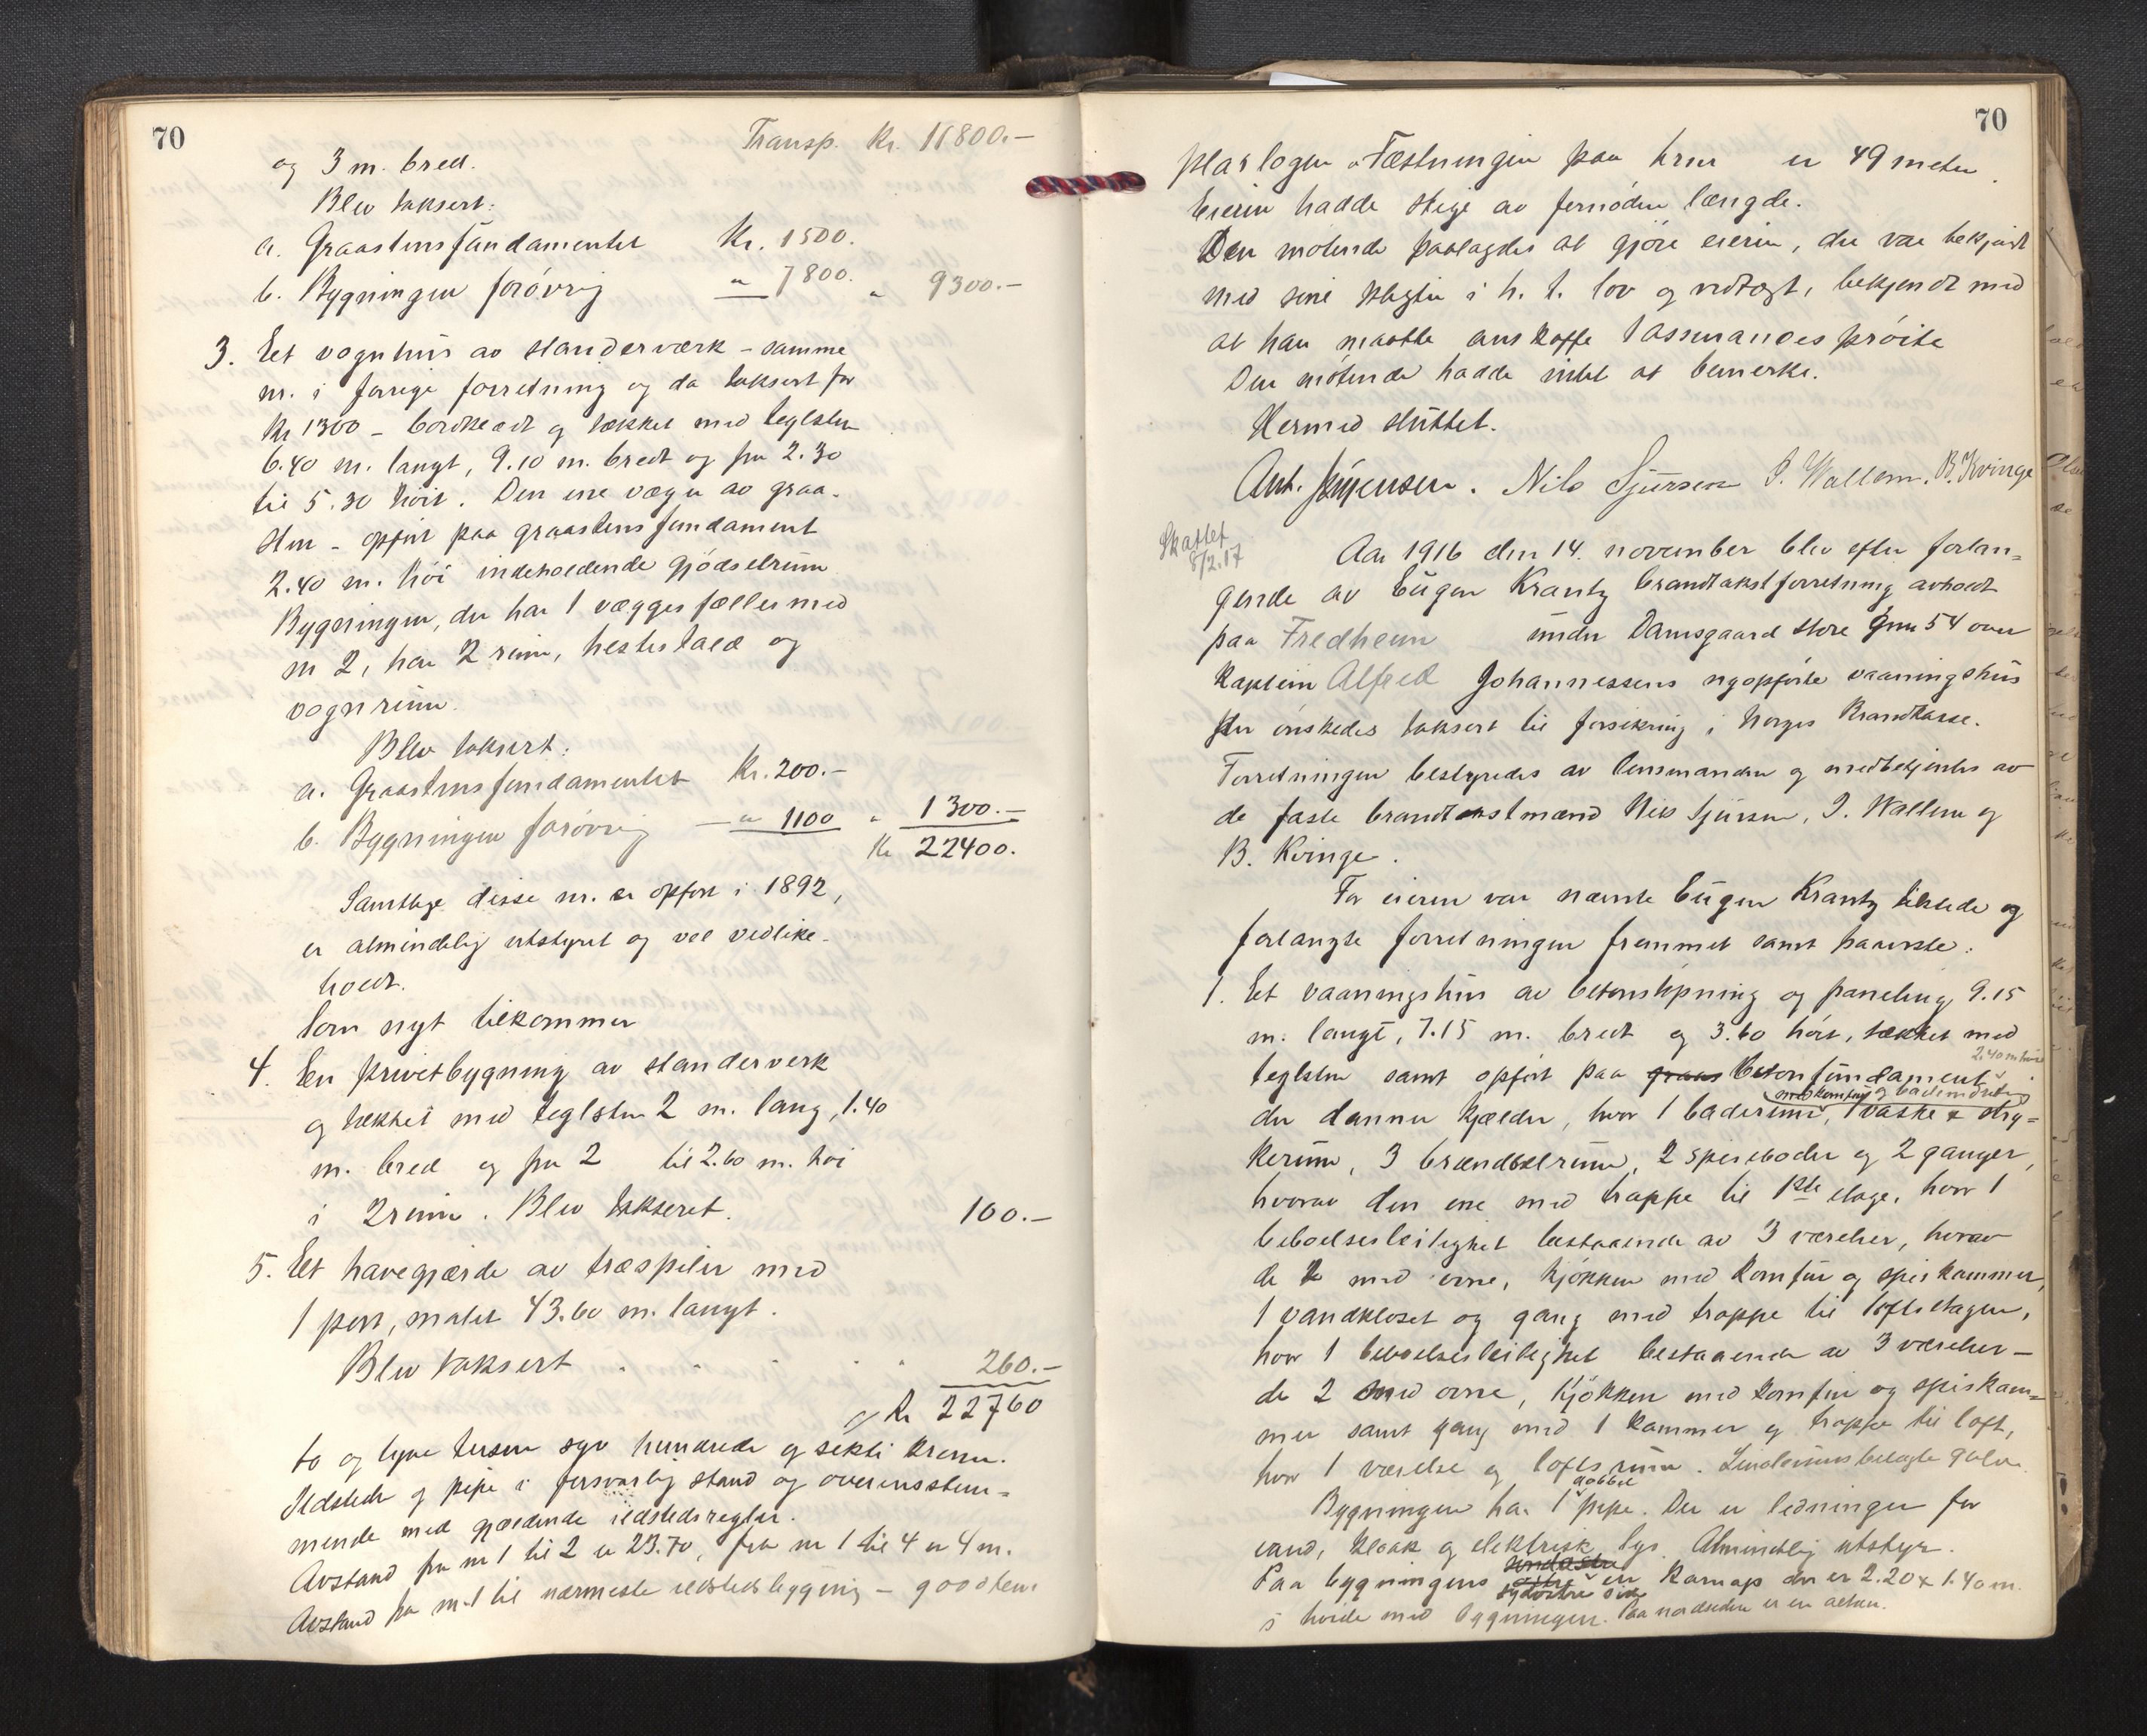 70
Transp. Kr. 11800.-
og 3 m. bred.
Blev taksert:
a. Graastensfundamentet Kr. 1500.
b. Bygningen forøvrig " 7800. " 9300.-
3. Eet vognhus av standerværk - samme
nr. i forrige forretning og da taksert for
Kr 1300 - bordklædt og tækket med teglsten
6.40 m. langt, 9.10 m. bredt og fra 2.30
til 5.30 høit. Den ene vægen av graa-
sten - opført paa graastensfundament
2.40 m. høi indeholdende gjødselrum
Bygningen, der har 1 vægges fælles med
nr 2, har 2 rum, hestestald og
vognrum.
Blev taksert:
a. Graastensfundamentet Kr. 200.-
b. Bygningen forøvrig - " 1100 " 1300.-
Kr 22400.
Samtlige disse nr. er opført i 1892,
er almindelig utstyret og vel vedlike-
holdt.
Som nyt tilkommer
4. En privetbygning av standerverk
og tækket med teglsten 2 m. lang, 1.40
m. bred og fra 2 til 2.60 m. høi
i 2 rum. Blev takseret. 100.-
5. Et havegjærde av træspiler med
1 port, malet 43.60 m. langt.
Blev taksert . . . . . 260.-
Kr 22760
to og tyve tusen syv hundrede og sekti kroner.
Ildsteder og pipe i forsvarlig stand og overensstem-
mende med gjældende ildstedsregler.
Avstand fra nr 1 til 2 er 23.70, fra nr 1 til 4 er 4 m.
Avstand fra nr. 1 til nærmeste ildstedsbygning - goodtem
70
plarlogen - Fæstningen paa er 49 meter.
Eieren hadde stige av fornøden længde.
Den møtende paalagdes at gjøre eieren, der var bekjendt
med sine pligter i h. t. lov og vedtægt, bekjendt med
at han maatte anskaffe tassmandssprøite
Den møtende hadde intet at bemerke.
Hermed sluttet.
Ant. Jørgensen. Nils Sjursen J. Wallem. B. Kvinge
Skattet
8/2.17
Aar 1916 den 14. november blev efter forlan-
gende av Eugen Krantz brandtakstforretning avholdt
paa Fredheim under Damsgaard store gnr 54 over
Kaptein Alfred Johannessens nyopførte vaaningshus
der ønskedes taksert til forsikring i Norges Brandkasse.
Forretningen bestyredes av lensmanden og medbetjentes av
de faste brandtakstmænd Nils Sjursen, J. Wallem og
B. Kvinge.
For eieren var nævnte Eugen Krantz tilstede og
forlangte forretningen fremmet samt paaviste:
1. Et vaaningshus av betonstøpning og paneling 9.15
m. langt, 7.15 m. bredt og 3.60 høit, tækket med
teglsten samt opført paa graas betonfundament 2.40 m høit
der danner kjælder, hvor 1 baderum med komfur og badeindretning, 1 vaske & stry-
kerum, 3 brændselrum, 2 spiseboder og 2 ganger,
hvorav den ene med trappe til 1ste etage, hvor 1
beboelsesleilighet bestaaende av 3 værelser, hvorav
de 2 med ovne, kjøkken med komfur og spiskammer,
1 vandkloset og gang med trappe til loftsetagen,
hvor 1 beboelsesleilighet bestaaende av 3 værelser -
de 2 med ovne, kjøkken med komfur og spiskam-
mer samt gang med 1 kammer og trappe til loft,
hvor 1 værelse og loftsrum. Linoleumsbelagte gulve.
Bygningen har 1 dobbel pipe. Der er ledninger for
vand, kloak og elektrisk lys. Almindelig utstyr.
Paa bygningens sydøstre side er en karnap der er 2.20 x 1.40 m.
i høide med bygningen. Paa nordsiden er en altan.